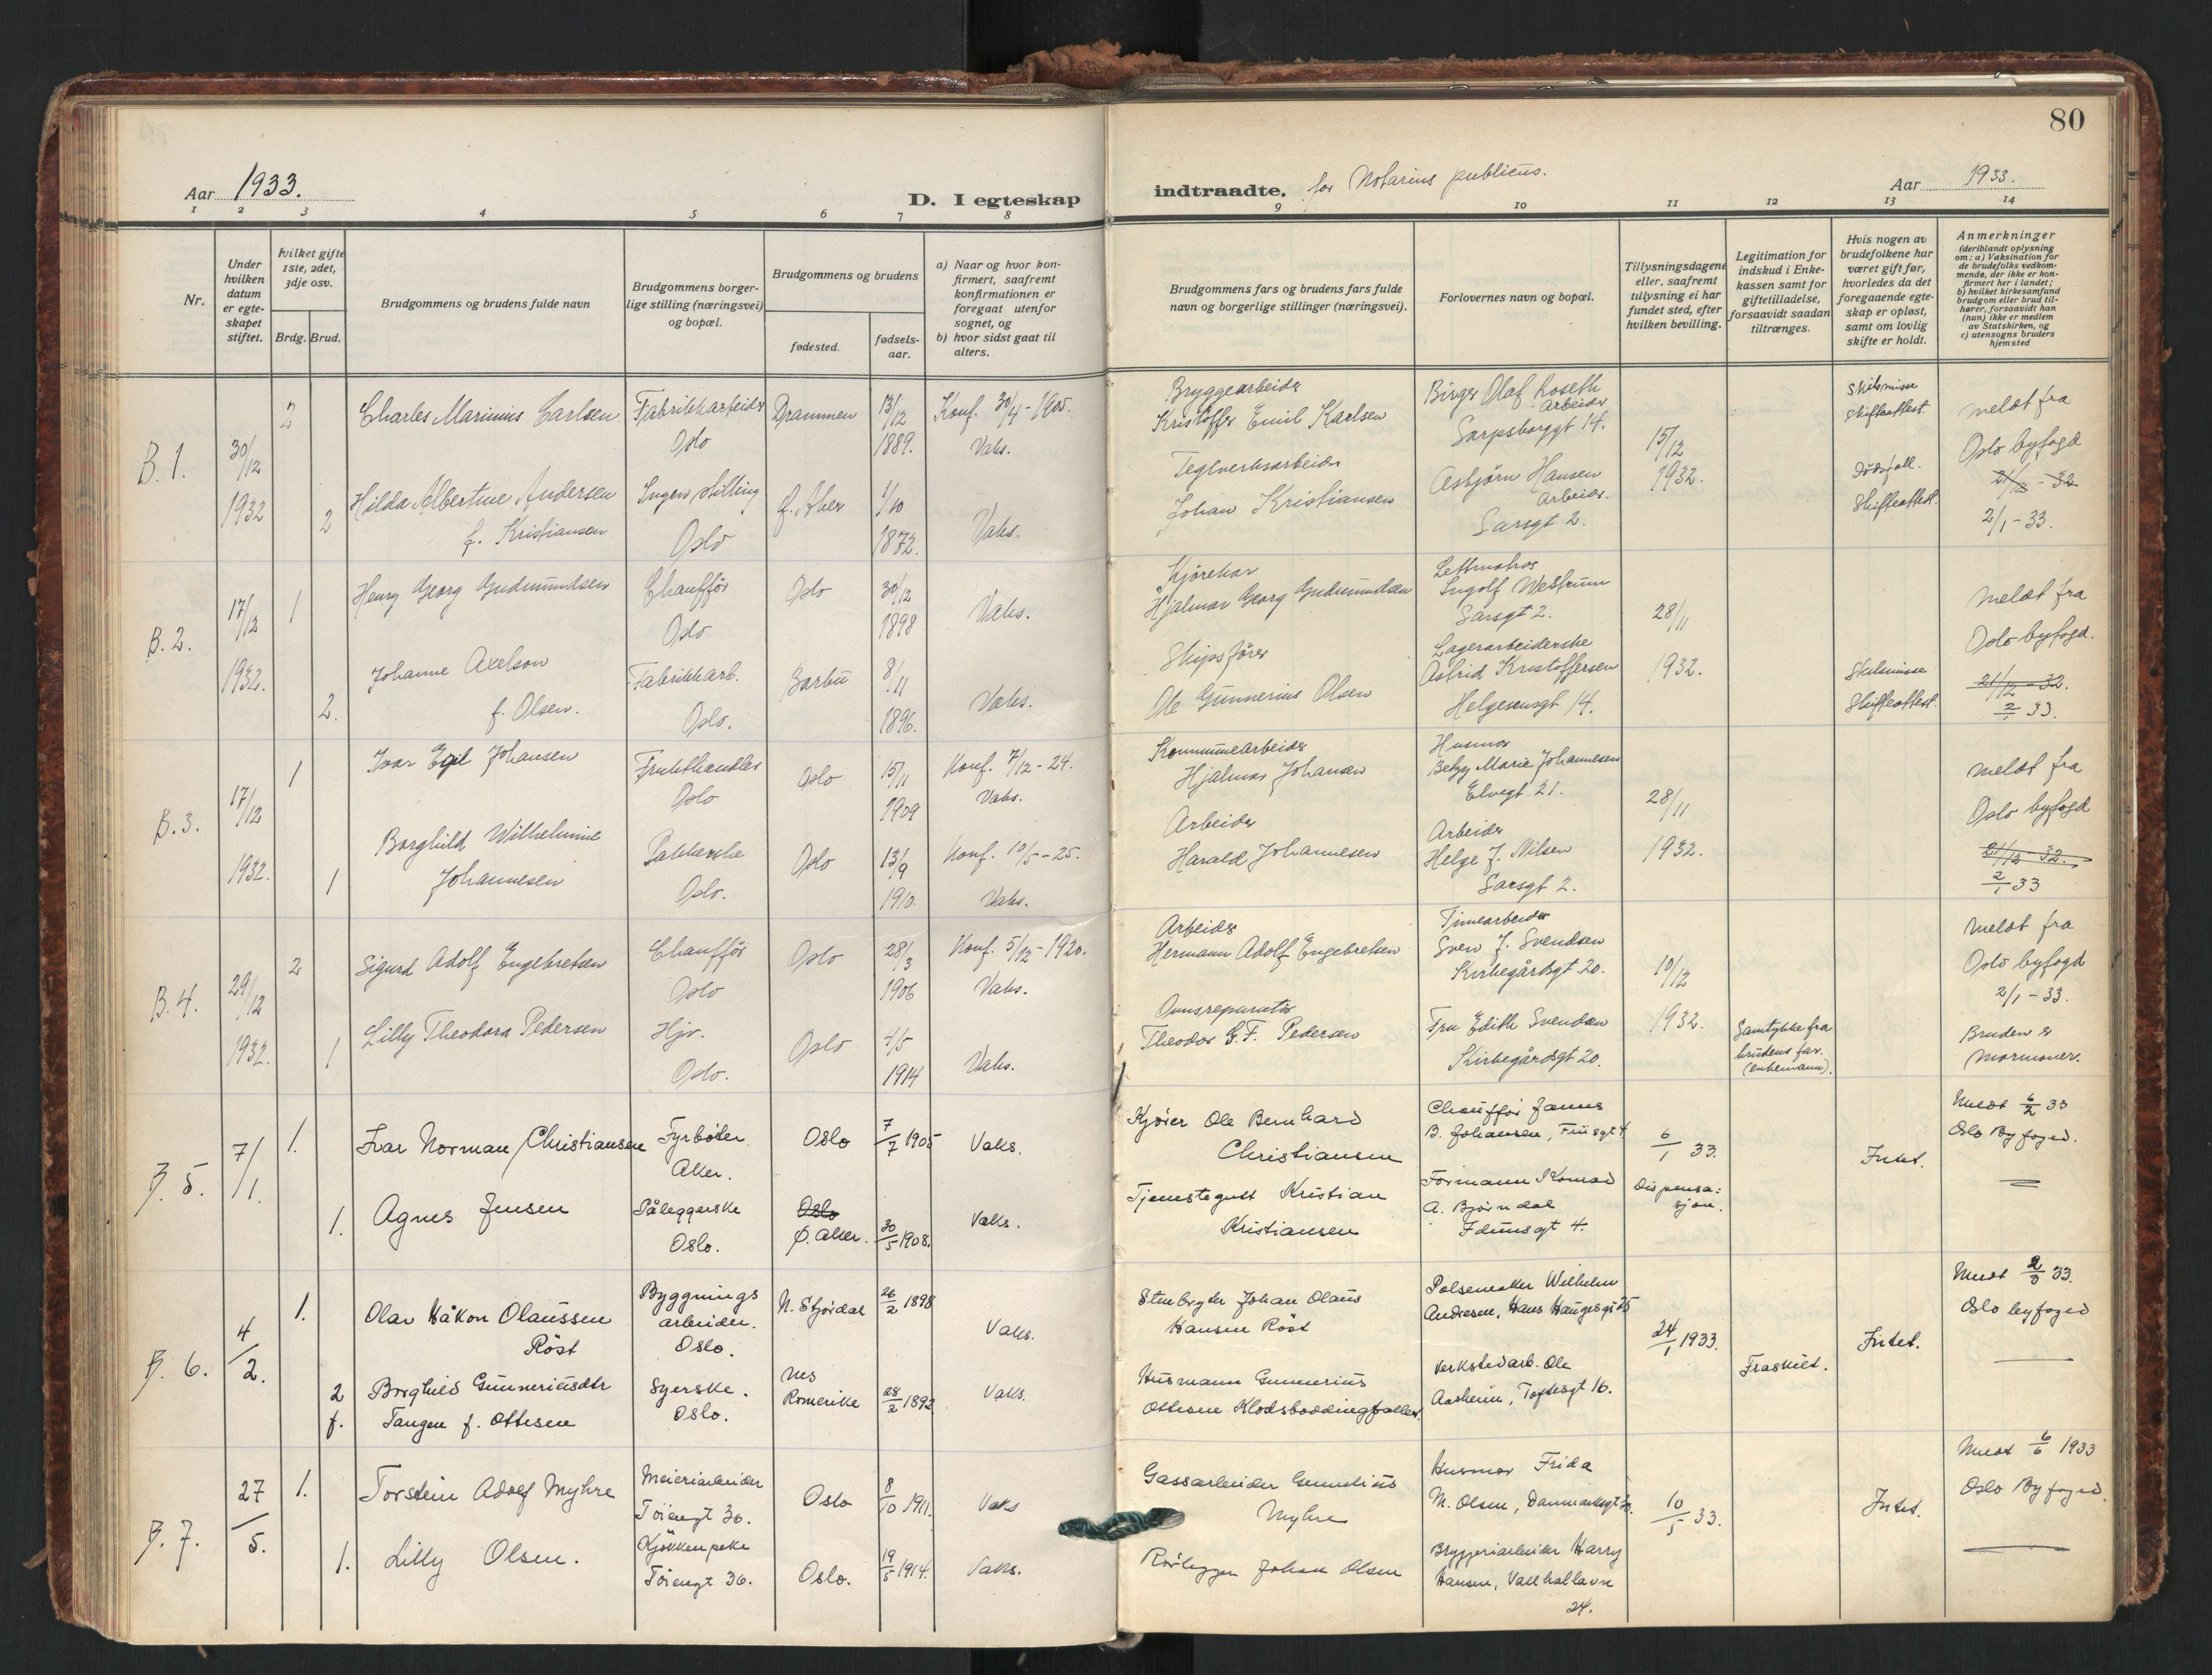 80
Aar 1933.
D. I egteskap indtraadte. for Notarius publicus.
Aar 1933.
1 2 3 4 5 6 7 8 9 10 11 12 13 14
Nr.
Under hvilken datum er egteskapet stiftet.
hvilket gifte 1ste, 2det, 3dje osv.
Brdg. Brud.
Brudgommens og brudens fulde navn
Brudgommens borgerlige stilling (næringsvei) og bopæl.
Brudgommens og brudens
fødested.
fødselsaar.
a) Naar og hvor konfirmert, saafremt konfirmationen er foregaat utenfor sognet, og
b) hvor sidst gaat til alters.
Brudgommens fars og brudens fars fulde navn og borgerlige stillinger (næringsvei).
Forlovernes navn og bopæl.
Tillysningsdagene eller, saafremt tillysning ei har fundet sted, efter hvilken bevilling.
Legitimation for indskud i Enkekassen samt for giftetilladelse, forsaavidt saadan tiltrænges.
Hvis nogen av brudefolkene har været gift før, hvorledes da det foregaaende egteskap er opløst, samt om lovlig skifte er holdt.
Anmerkninger (deriblandt oplysning om: a) Vaksination for de brudefolks vedkommende, der ikke er konfirmert her i landet; b) hvilket kirkesamfund brudgom eller brud tilhører, forsaavidt han (hun) ikke er medlem av Statskirken, og c) utensogns bruders hjemsted
B. 1.
30/12 1932
2
Charles Marinius Carlsen
Fabrikkarbeider
Oslo
Drammen
13/12 1889.
Konf. 30/4 - 1905.
Vaks.
Bryggearbeider
Kristoffer Emil Karlsen
Birger Olaf Roseth
Arbeider
Sarpsborggt 14.
15/12 1932.
Skilsmisse
Skifteattest.
meldt fra
Oslo byfogd
21/12 - 32
2/1 - 33.
2
Hilda Albertine Andersen
f. Kristiansen
Ingen stilling
Oslo
Ø. Aker
1/10 1872.
Vaks.
Teglverksarbeider
Johan Kristiansen
Asbjørn Hansen
Arbeider.
Sarsgt 2.
Dødsfall.
Skifteattest.
B. 2.
17/12 1932.
1
Henry Georg Gudmundsen
Chauffør
Oslo
Oslo
30/12 1898
Vaks.
Kjørekar
Hjalmar Georg Gudmundsen
Lettmatros
Ingolf Westrum
Sarsgt 2.
28/11 1932.
meldt fra
Oslo byfogd.
21/12 - 32.
2/1 33.
2.
Johanne Axelson
f. Olsen.
Fabrikkarb.
Oslo.
Barbu
8/11 1896.
Vaks.
Skipsfører
Ole Gunnerius Olsen
Lagerarbeiderske
Astrid Kristoffersen
Helgesensgt 14.
Skilsmisse
Skifteattest.
B. 3.
17/12 1932.
1
Ivar Egil Johansen
Frukthandler
Oslo
Oslo
15/11 1909
Konf. 7/12 - 24.
Vaks.
Kommunearbeider
Hjalmar Johansen
Husmor
Betzy Marie Johannesen
Elvegt 21.
28/11 1932.
meldt fra
Oslo byfogd
21/12 - 32.
2/1 33
1
Borghild Wilhelmine
Johannesen
Pakkerske
Oslo.
Oslo
13/9 1910.
Konf. 10/5 - 25.
Vaks.
Arbeider
Harald Johannesen
Arbeider
Helge J. Nilsen
Sarsgt 2.
B. 4.
29/12 1932.
2
Sigurd Adolf Engebretsen
Chauffør
Oslo
Oslo
28/3 1906
Konf. 5/12 - 1920.
Vaks.
Arbeider
Hermann Adolf Engebretsen
Timearbeider
Sven J. Svendsen
Kirkegårdsgt. 20.
10/12 1932.
meldt fra
Oslo byfogd
2/1 - 33.
1
Lilly Theodora Pedersen
Hjv.
Oslo.
Oslo
4/5 1914
Vaks.
Ovnsreparatør
Theodor G. F. Pedersen
Fru Edith Svendsen
Kirkegårdsgt 20.
Samtykke fra
brudens far.
(enkemann).
Bruden er
Mormoner.
B. 5.
7/1.
1.
Ivar Norman Christiansen
Fyrbøter.
Aker.
Oslo
7/7 1905
Vaks.
Kjører Ole Bernhard
Christiansen
Chauffør
B. Johansen,
6/1 33.
Dispensasjon.
Intet.
Meldt 6/2 33
Oslo Byfoged.
1.
Agnes Jensen
Påleggerske
Oslo.
Oslo
Ø. Aker.
30/5 1908.
Vaks.
Tjenestegutt Kristian
Kristiansen
Formann Konrad
A. Bjørndal
Idunsgt 4.
B. 6.
4/2.
1.
Olav Håkon Olaussen
Röst
Byggnings
arbeider.
Oslo.
N. Stjørdal
26/2 1898
Vaks.
Stenbryter Johan Olaus
Hansen Röst
Pølsemaker Wilhelm
Andresen, Hans Haugesgt 5
24/1 1933.
Fraskilt.
Intet.
Meldt 2/3 33.
Oslo byfoged
2
f.
Borghild Gunneriusdtr
Tangen f. Ottesen
Syerske.
Oslo.
Nes
Romerike
28/2 1892
Vaks.
Husmann Gunnerius
Ottesen
Verkstedarb. Ole
Aasheim, Toftesgt 16.
B. 7.
27/5.
1.
Torstein Adolf Myhre
Meieriarbeider
Töiengt 36.
Oslo
8/10 1911.
Vaks
Gassarbeider
Myhre
Husmor Frida
M. Olsen, Danmarksgt
10/5 33.
Intet.
Meldt 6/6 1933
Oslo Byfoged.
1.
Lilly Olsen.
Kjökkenpike
Töiengt 36.
Oslo.
19/5 1914.
Vaks.
Rørlegger Johan Olsen
Bryggeriarbeider Harry
Hansen,
24.